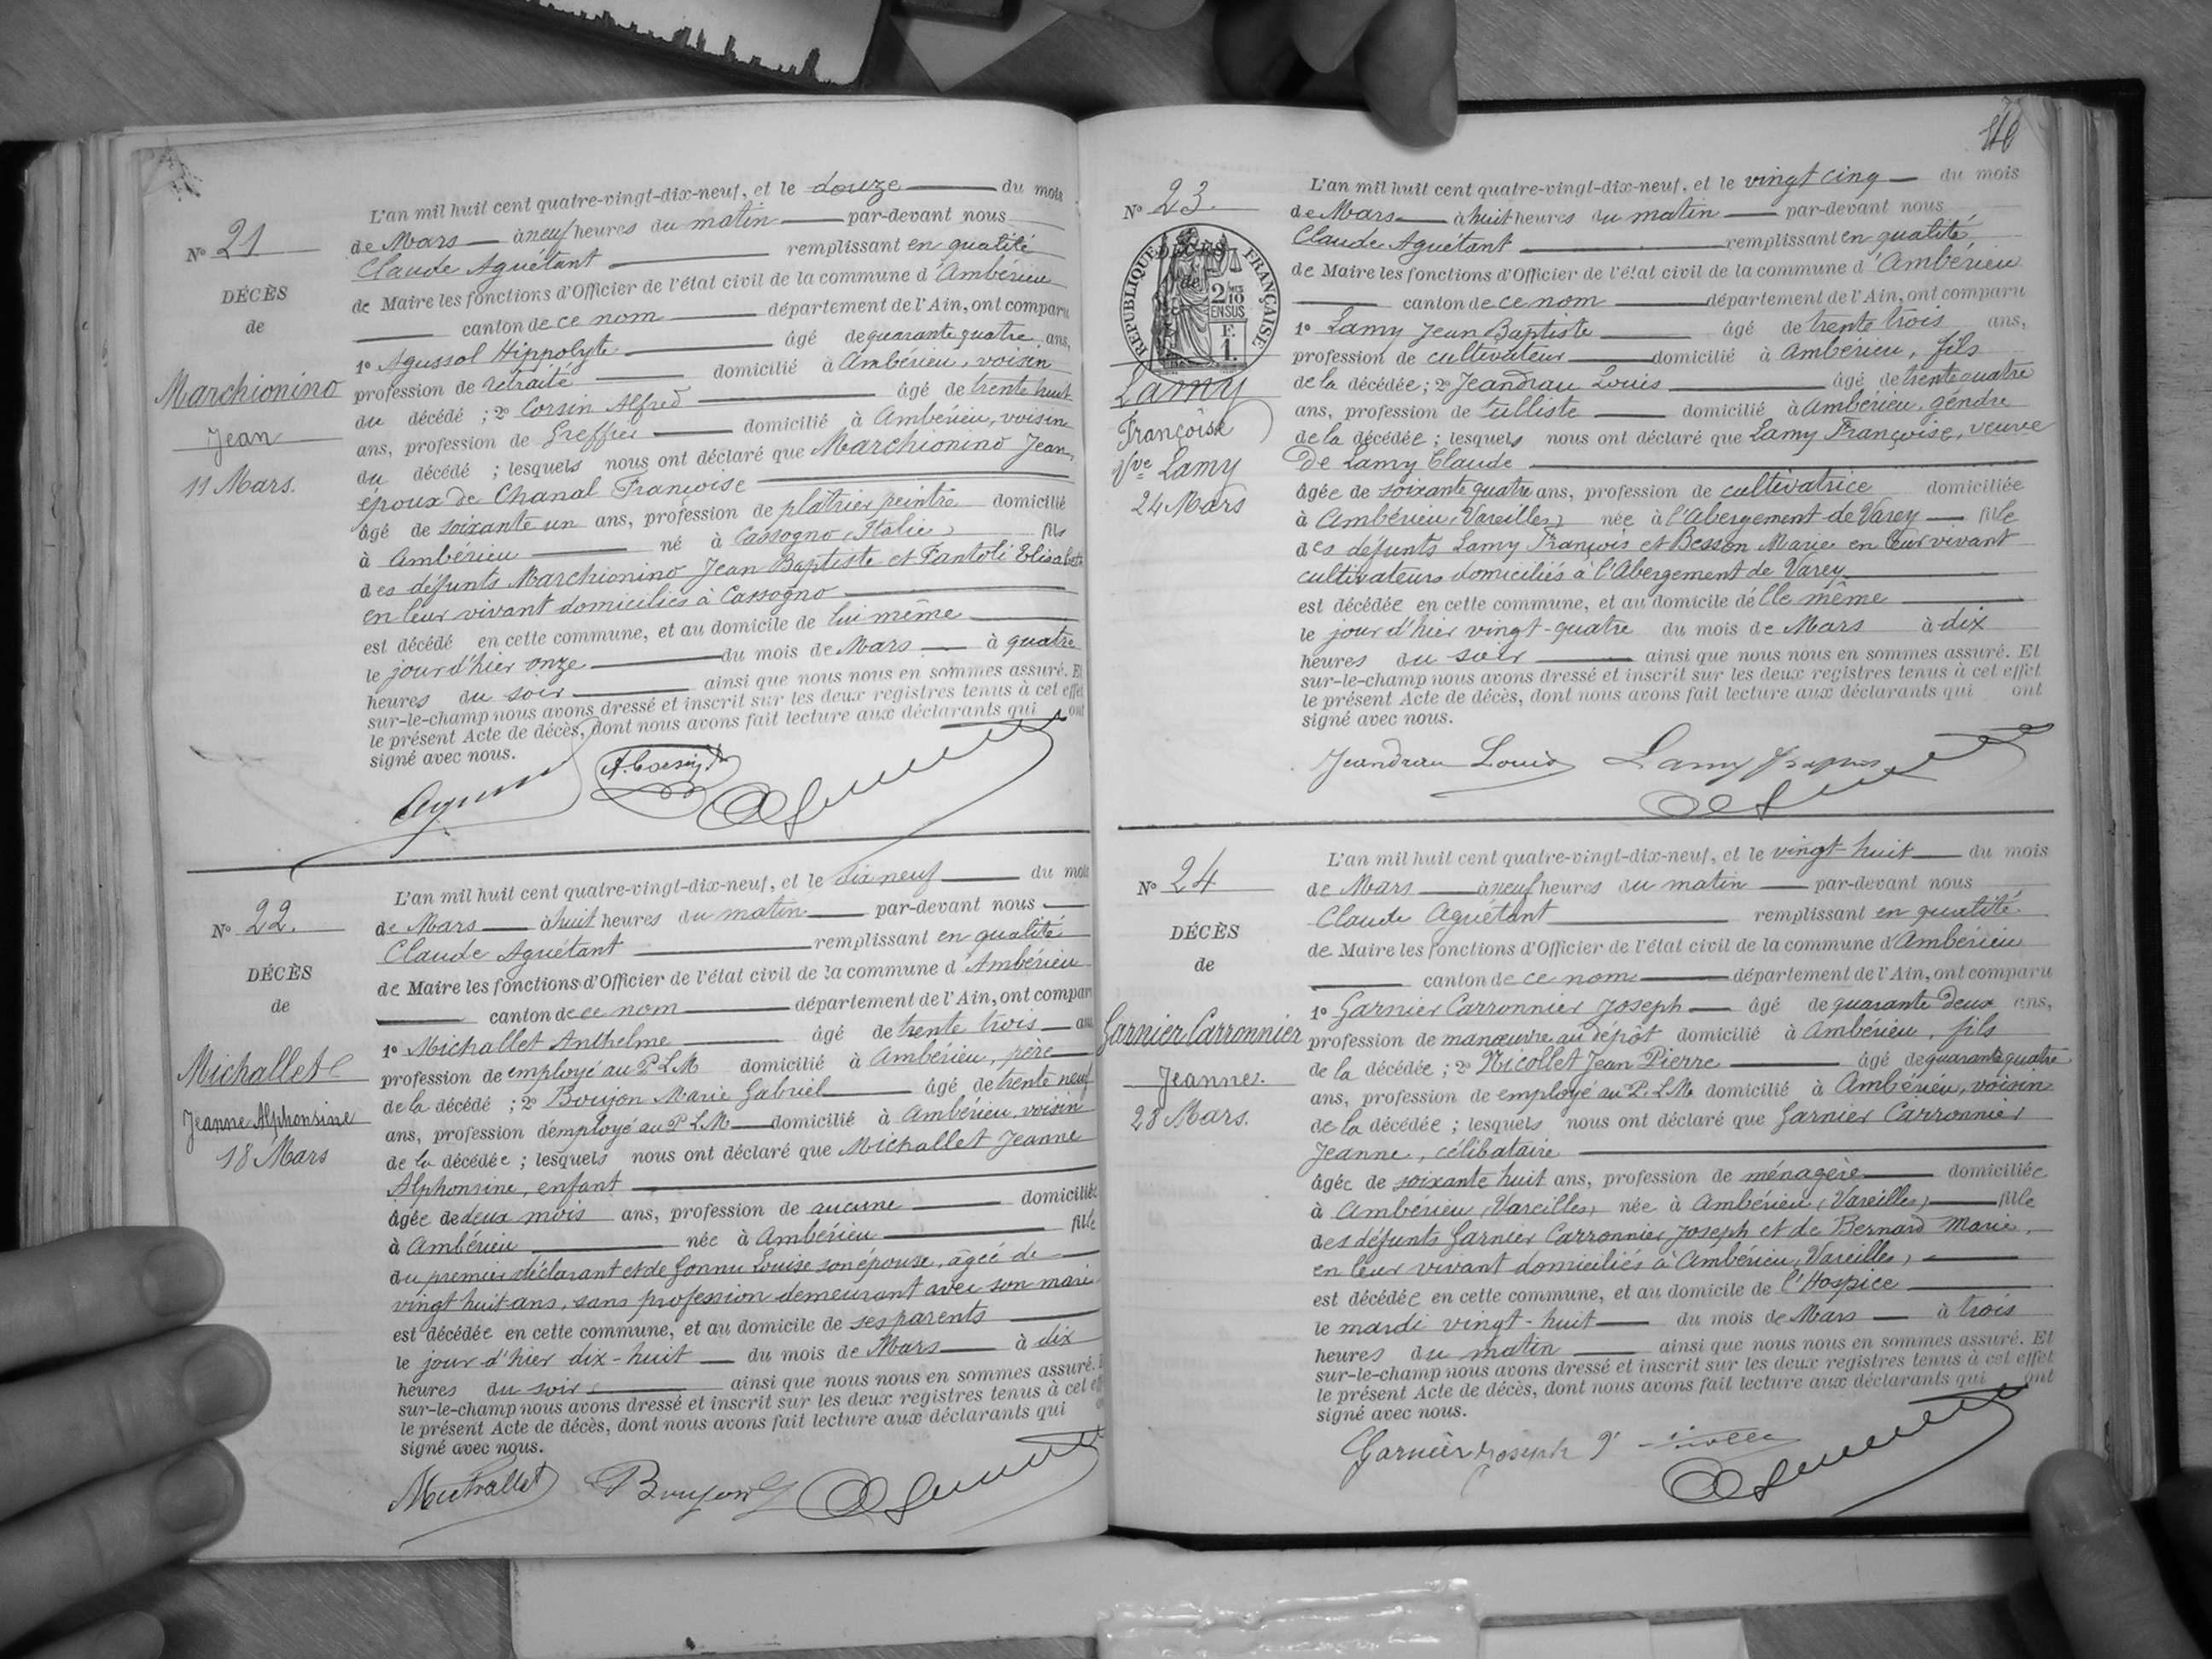 Nº 21
DÉCÈS
de
Marchionino
Jean
11 Mars.
L'an mil huit cent quatre-vingt-dix-neuf, et le douze du mois
de Mars à neuf heures du matin par-devant nous
Claude Aguétant remplissant en qualité
de Maire les fonctions d'Officier de l'état civil de la commune d'Ambérieu
canton de ce nom département de l'Ain, ont comparu
1º Agussol Hippolyte âgé de quarante quatre ans,
profession de retraité domicilié à Ambérieu, voisin
du décédé ; 2º Corsin Alfred âgé de trente huit
ans, profession de Greffier domicilié à Ambérieu, voisin
du décédé ; lesquels nous ont déclaré que Marchionino Jean,
époux de Chanal Françoise
âgé de soixante un ans, profession de plâtrier peintre domicilié
à Ambérieu né à Cassogno (Italie) fils
des défunts Marchionino Jean Baptiste et Fantoli Elisabeth
en leur vivant domiciliés à Cassogno
est décédé en cette commune, et au domicile de lui même
le jour d'hier onze du mois de Mars à quatre
heures du soir ainsi que nous nous en sommes assuré. Et
sur-le-champ nous avons dressé et inscrit sur les deux registres tenus à cet effet
le présent Acte de décès, dont nous avons fait lecture aux déclarants qui ont
signé avec nous.
A. Corsin
Nº 22.
DÉCÈS
de
Michallet
Jeanne Alphonsine
18 Mars
L'an mil huit cent quatre-vingt-dix-neuf, et le dix neuf du mois
de Mars à huit heures du matin par-devant nous
Claude Aguétant remplissant en qualité
de Maire les fonctions d'Officier de l'état civil de la commune d'Ambérieu
canton de ce nom département de l'Ain, ont compar
1º Michallet Anthelme âgé de trente trois an
profession de employé au P L M domicilié à Ambérieu, père
de la décédé ; 2º Boujon Marie Gabriel âgé de trente neuf
ans, profession d'employé au P L M domicilié à Ambérieu, voisin
de la décédée ; lesquels nous ont déclaré que Michallet Jeanne
Alphonsine, enfant
âgée de deux mois ans, profession de aucune domiciliée
à Ambérieu née à Ambérieu fille
du premier déclarant et de Gonnu Louise son épouse, âgée de
vingt huit ans, sans profession demeurant avec son mari
est décédée en cette commune, et au domicile de ses parents
le jour d'hier dix-huit du mois de Mars à dix
heures du soir ainsi que nous nous en sommes assuré.
sur-le-champ nous avons dressé et inscrit sur les deux registres tenus à cet eff
le présent Acte de décès, dont nous avons fait lecture aux déclarants qui
signé avec nous.
Michallet Boujon G
Nº 23.
DÉCÈS
de
RÉPUBLIQUE FRANÇAISE
2/10 EN SUS
F. 1.
Lamy
Françoise
Vve Lamy
24 Mars
L'an mil huit cent quatre-vingt-dix-neuf, et le vingt cinq du mois
de Mars à huit heures du matin par-devant nous
Claude Aguétant remplissant en qualité
de Maire les fonctions d'Officier de l'état civil de la commune d'Ambérieu
canton de ce nom département de l'Ain, ont comparu
1º Lamy Jean Baptiste âgé de trente trois ans,
profession de cultivateur domicilié à Ambérieu, fils
de la décédée ; 2º Jeandrau Louis âgé de trente quatre
ans, profession de tulliste domicilié à Ambérieu, gendre
de la décédée ; lesquels nous ont déclaré que Lamy Françoise, veuve
de Lamy Claude
âgée de soixante quatre ans, profession de cultivatrice domiciliée
à Ambérieu (Vareilles) née à l'Abergement de Varey fille
des défunts Lamy François et Besson Marie en leur vivant
cultivateurs domiciliés à l'Abergement de Varey
est décédée en cette commune, et au domicile d'elle même
le jour d'hier vingt-quatre du mois de Mars à dix
heures du soir ainsi que nous nous en sommes assuré. Et
sur-le-champ nous avons dressé et inscrit sur les deux registres tenus à cet effet
le présent Acte de décès, dont nous avons fait lecture aux déclarants qui ont
signé avec nous.
Jeandrau Louis Lamy
Nº 24
DÉCÈS
de
Garnier Carronnier
Jeanne.
28 Mars.
L'an mil huit cent quatre-vingt-dix-neuf, et le vingt-huit du mois
de Mars à neuf heures du matin par-devant nous
Claude Aguétant remplissant en qualité
de Maire les fonctions d'Officier de l'état civil de la commune d'Ambérieu
canton de ce nom département de l'Ain, ont comparu
1º Garnier Carronnier Joseph âgé de quarante deux ans,
profession de manœuvre au dépôt domicilié à Ambérieu, fils
de la décédée ; 2º Nicollet Jean Pierre âgé de quarante quatre
ans, profession de employé au P. L M. domicilié à Ambérieu, voisin
de la décédée ; lesquels nous ont déclaré que Garnier Carronnier
Jeanne, célibataire
âgée de soixante huit ans, profession de ménagère domiciliée
à Ambérieu (Vareilles) née à Ambérieu (Vareilles) fille
des défunts Garnier Carronnier Joseph et de Bernard Marie,
en leur vivant domiciliés à Ambérieu (Vareilles)
est décédée en cette commune, et au domicile de l'Hospice
le mardi vingt-huit du mois de Mars à trois
heures du matin ainsi que nous nous en sommes assuré. Et
sur-le-champ nous avons dressé et inscrit sur les deux registres tenus à cet effet
le présent Acte de décès, dont nous avons fait lecture aux déclarants qui ont
signé avec nous.
Garnier Joseph